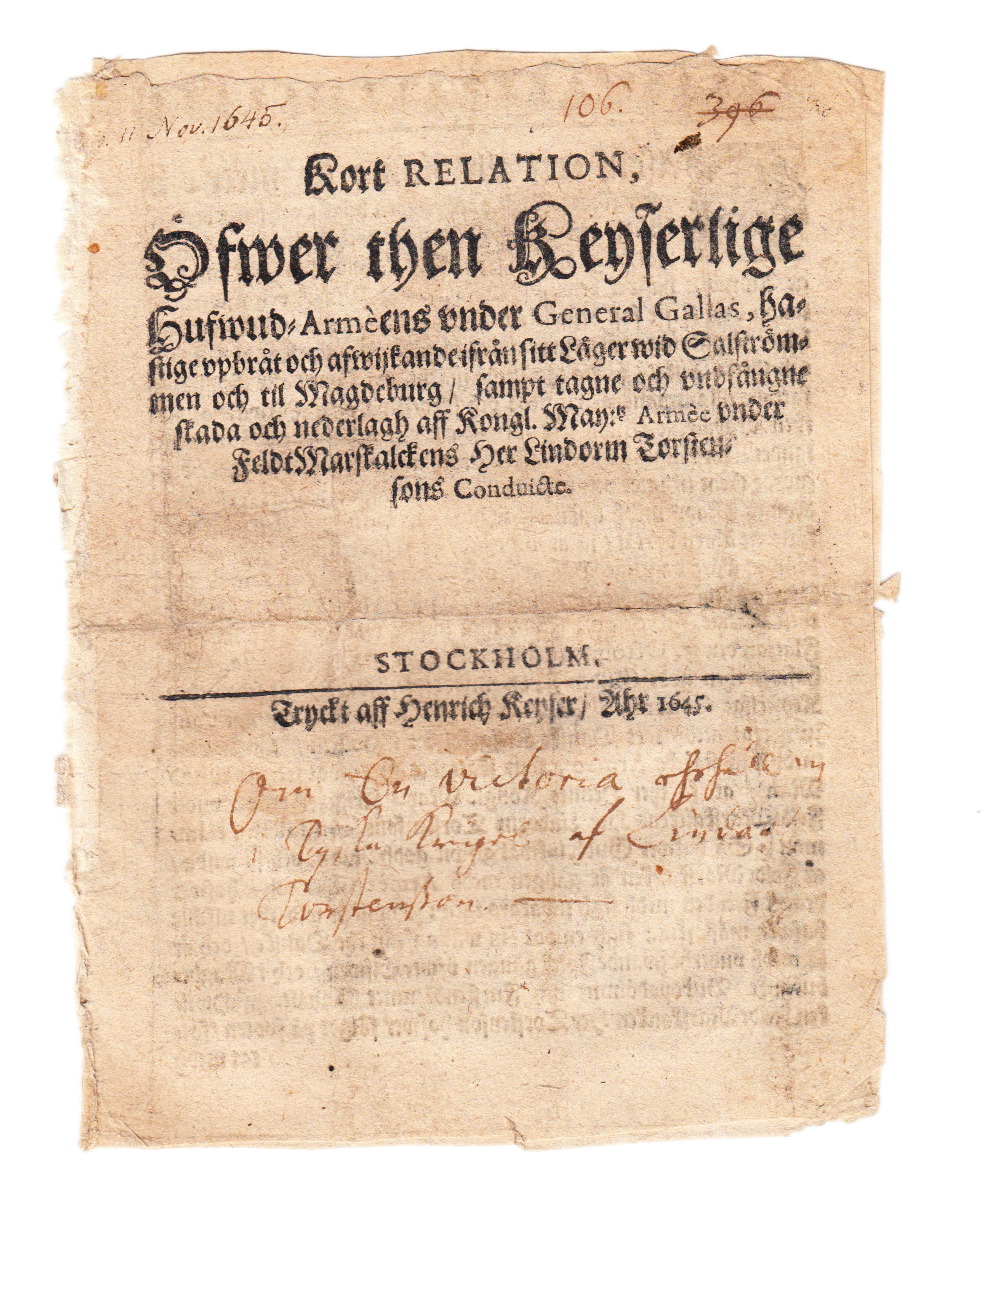 11 Nov. 1645.
106. 396
Kort RELATION,
Öfwer then Keyserlige
Hufwud-Armèens vnder General Gallas, ha-
stige vpbråt och afwijkande ifrån sitt Läger wid Salström-
men och til Magdeburg / sampt tagne och vndfångne
skada och nederlagh aff Kongl. May:tz Armèe vnder
FeldtMarskalckens Her Lindorm Torsten-
sons Conduicte.
STOCKHOLM,
Tryckt aff Henrich Keyser / Åhr 1645.
Om En victoria
i Tyska Kriget af
Torstensson